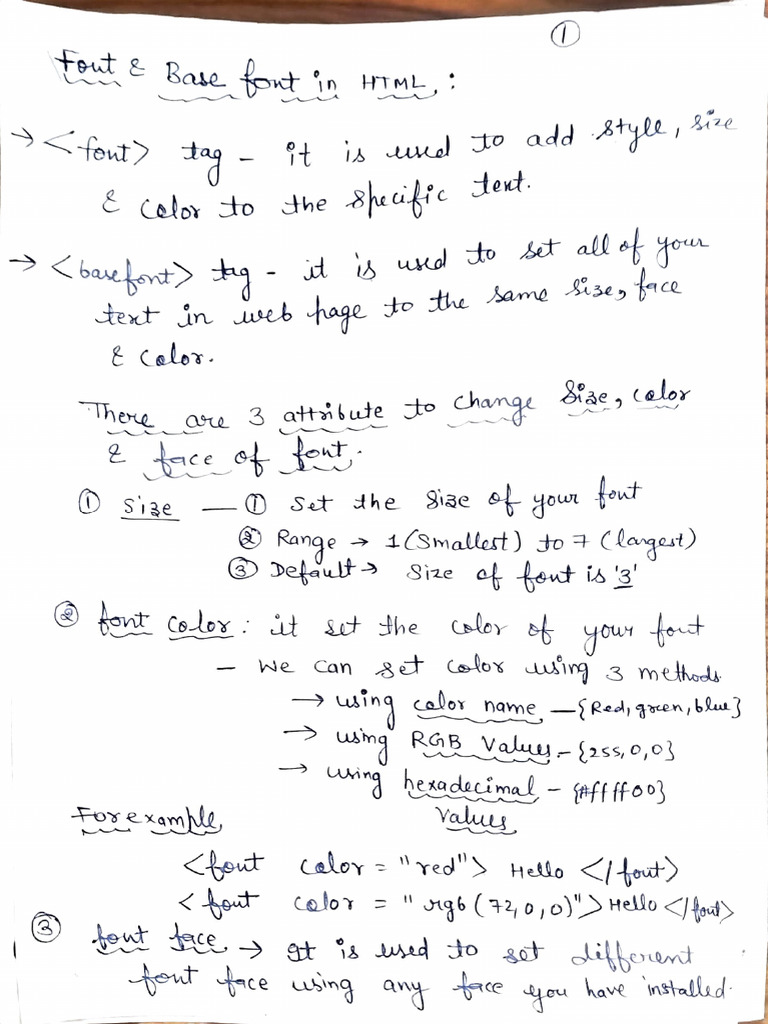 ①
Font & Base font in HTML :
→ <font> tag - it is used to add style, size
& color to the specific text.
→ <basefont> tag - it is used to set all of your
text in web page to the same size, face
& color.
There are 3 attribute to change Size, color
& face of font.
① Size — ① Set the size of your font
② Range → 1 (Smallest) to 7 (largest)
③ Default → Size of font is '3'
② font color : it set the color of your font
- we can set color using 3 methods.
→ using color name - {Red, green, blue}
→ using RGB Values - {255,0,0}
→ using hexadecimal - {#ffff00}
Values
For example
<font color = "red"> Hello </font>
<font color = "rgb(72,0,0)"> Hello </font>
③ font face → It is used to set different
font face using any face you have installed.